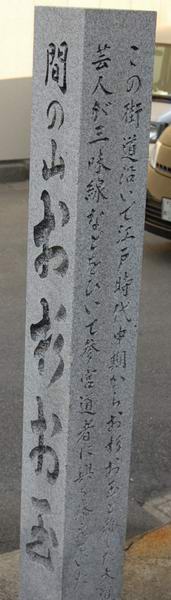 間の山お杉お玉
この街道沿いで江戸時代中期からお杉お玉と
芸人が三味線などをひいて参宮道者に